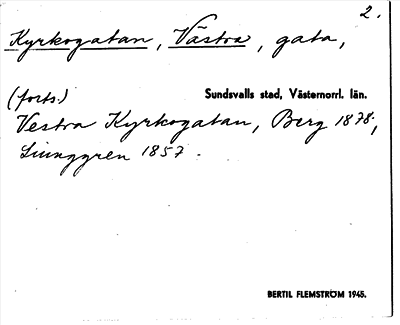 2.
Kyrkogatan, Västra, gata,
(forts.) Sundsvalls stad, Västernorrl. län.
Vestra Kyrkogatan, Berg 1878;
Ljunggren 1857.
BERTIL FLEMSTRÖM 1945.